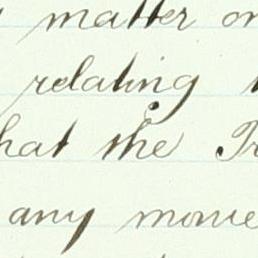 matter on
relating
hat the Tr
any monie